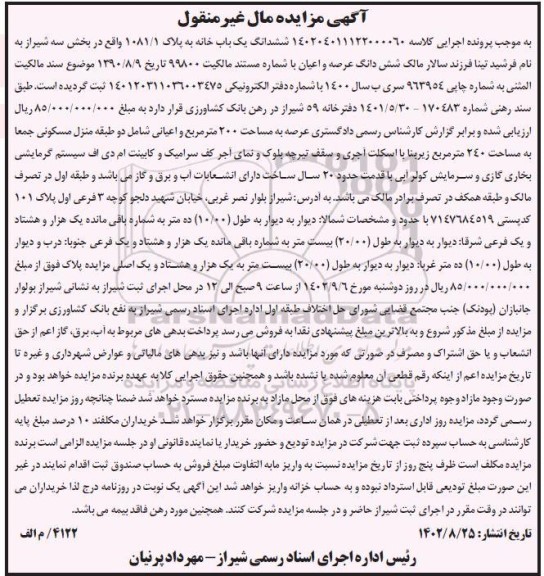 آگهی مزایده مال غیرمنقول
به موجب پرونده اجرایی کلاسه ۱۴۰۲۰۴۰۱۱۱۲۲۰۰۰۰۶۰ ششدانگ یک باب خانه به پلاک ۱۰۸۱/۱ واقع در بخش سه شیراز به
نام فرشید تینا فرزند سالار مالک شش دانگ عرصه و اعیان با شماره مستند مالکیت ۹۹۸۰۰ تاریخ ۱۳۹۰/۸/۹ موضوع سند مالکیت
المثنی به شماره چاپی ۹۶۳۹۵۴ سری ب سال ۱۴۰۰ با شماره دفتر الکترونیکی ۱۴۰۱۲۰۳۱۱۰۳۶۰۰۳۴۷۵ ثبت گردیده است. طبق
سند رهنی شماره ۱۷۰۴۸۳ - ۱۴۰۱/۵/۳۰ دفترخانه ۵۹ شیراز در رهن بانک کشاورزی قرار دارد به مبلغ ۸۵/۰۰۰/۰۰۰/۰۰۰ ریال
ارزیابی شده و برابر گزارش کارشناس رسمی دادگستری عرصه به مساحت ۲۰۰ مترمربع و اعیانی شامل دو طبقه منزل مسکونی جمعا
به مساحت ۲۴۰ مترمربع زیربنا با اسکلت آجری و سقف تیرچه بلوک و نمای آجر کف سرامیک و کابینت ام دی اف سیستم گرمایشی
بخاری گازی و سرمایش کولر آبی با قدمت حدود ۲۰ سال ساخت دارای انشعابات آب و برق و گاز می باشد و طبقه اول در تصرف
مالک و طبقه همکف در تصرف برادر مالک می باشد. به آدرس: شیراز بلوار نصر غربی، خیابان شهید دلجو کوچه ۳ فرعی اول پلاک ۱۰۱
کدپستی ۷۱۴۷۶۸۴۵۱۹ با حدود و مشخصات شمالا: دیوار به دیوار به طول (۱۰/۰۰) ده متر به شماره باقی مانده یک هزار و هشتاد
و یک فرعی شرقا: دیوار به دیوار به طول (۲۰/۰۰) بیست متر به شماره باقی مانده یک هزار و هشتاد و یک فرعی جنوبا: درب و دیوار
به طول (۱۰/۰۰) ده متر غربا: دیوار به دیوار به طول (۲۰/۰۰) بیست متر به یک هزار و هشتاد و یک اصلی مزایده پلاک فوق از مبلغ
۸۵/۰۰۰/۰۰۰/۰۰۰ ریال در روز دوشنبه مورخ ۱۴۰۲/۹/۶ از ساعت ۹ صبح الی ۱۲ در محل اجرای ثبت شیراز به نشانی شیراز بولوار
جانبازان (بودنک) جنب مجتمع قضایی شورای حل اختلاف طبقه اول اداره اجرای اسناد رسمی شیراز به نفع بانک کشاورزی برگزار و
مزایده از مبلغ مذکور شروع و به بالاترین مبلغ پیشنهادی نقدا به فروش می رسد پرداخت بدهی های مربوط به آب، برق، گاز اعم از حق
انشعاب و یا حق اشتراک و مصرف در صورتی که مورد مزایده دارای آنها باشد و نیز بدهی های مالیاتی و عوارض شهرداری و غیره تا
تاریخ مزایده اعم از اینکه رقم قطعی آن معلوم شده یا نشده باشد و همچنین حقوق اجرایی کلا به عهده برنده مزایده خواهد بود و در
صورت وجود مازاد وجوه پرداختی بابت هزینه های فوق از محل مازاد به برنده مزایده مسترد خواهد شد ضمنا چنانچه روز مزایده تعطیل
رسمی گردد، مزایده روز اداری بعد از تعطیلی در همان ساعت و مکان مقرر برگزار خواهد شد خریداران مکلفند ۱۰ درصد مبلغ پایه
کارشناسی به حساب سپرده ثبت جهت شرکت در مزایده تودیع و حضور خریدار یا نماینده قانونی او در جلسه مزایده الزامی است برنده
مزایده مکلف است ظرف پنج روز از تاریخ مزایده نسبت به واریز مابه التفاوت مبلغ فروش به حساب صندوق ثبت اقدام نمایند در غیر
این صورت مبلغ تودیعی قابل استرداد نبوده و به حساب خزانه واریز خواهد شد این آگهی یک نوبت در روزنامه درج لذا خریداران می
توانند در وقت مقرر در اجرای ثبت شیراز حاضر و در جلسه مزایده شرکت کنند. همچنین مورد رهن فاقد بیمه می باشد.
تاریخ انتشار: ۱۴۰۲/۸/۲۵ ۴۱۲۲/ م الف
رئیس اداره اجرای اسناد رسمی شیراز - مهرداد پرنیان
پایگاه اطلاع رسانی مناقصه و مزایده
۰۲۱-۸۸۳۴۹۶۷۰-۵